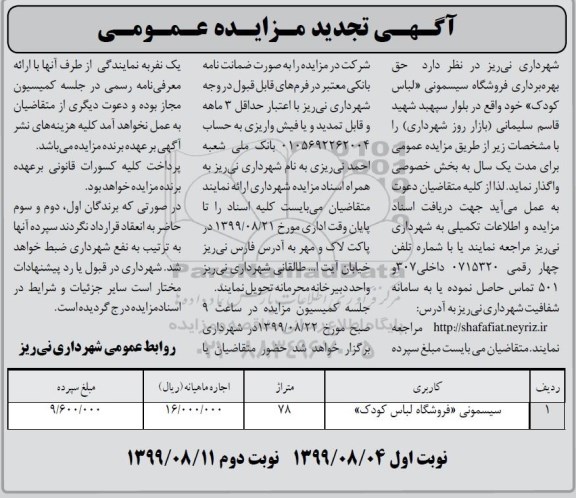 آگهـی تجدید مـزایـده عـمـومـی
شهرداری نی‌ریز در نظر دارد حق
بهره‌برداری فروشگاه سیسمونی «لباس
کودک» خود واقع در بلوار سپهبد شهید
قاسم سلیمانی (بازار روز شهرداری) را
با مشخصات زیر از طریق مزایده عمومی
برای مدت یک سال به بخش خصوصی
واگذار نماید. لذا از کلیه متقاضیان دعوت
به عمل می‌آید جهت دریافت اسناد
مزایده و اطلاعات تکمیلی به شهرداری
نی‌ریز مراجعه نمایند یا با شماره تلفن
چهار رقمی ۰۷۱۵۳۲۰ داخلی ۳۰۷ و
۵۰۱ تماس حاصل نموده یا به سامانه
شفافیت شهرداری نی‌ریز به آدرس:
http://shafafiat.neyriz.ir مراجعه
نمایند. متقاضیان می‌بایست مبلغ سپرده
شرکت در مزایده را به صورت ضمانت نامه
بانکی معتبر در فرم‌های قابل قبول در وجه
شهرداری نی‌ریز با اعتبار حداقل ۳ ماهه
و قابل تمدید و یا فیش واریزی به حساب
۰۱۰۵۶۹۲۲۶۲۰۰۴ بانک ملی شعبه
احمد نی‌ریزی به نام شهرداری نی‌ریز به
همراه اسناد مزایده شهرداری ارائه نمایند
متقاضیان می‌بایست کلیه اسناد را تا
پایان وقت اداری مورخ ۱۳۹۹/۰۸/۲۱ در
پاکت لاک و مهر به آدرس فارس نی‌ریز
خیابان آیت ا... طالقانی شهرداری نی‌ریز
واحد دبیرخانه محرمانه تحویل نمایند.
جلسه کمیسیون مزایده در ساعت ۹
صبح مورخ ۱۳۹۹/۰۸/۲۲ در شهرداری
برگزار خواهد شد. حضور متقاضیان یا
یک نفر به نمایندگی از طرف آنها با ارائه
معرفی‌نامه رسمی در جلسه کمیسیون
مجاز بوده و دعوت دیگری از متقاضیان
به عمل نخواهد آمد کلیه هزینه‌های نشر
آگهی بر عهده برنده مزایده می‌باشد.
پرداخت کلیه کسورات قانونی برعهده
برنده مزایده خواهد بود.
در صورتی که برندگان اول، دوم و سوم
حاضر به انعقاد قرارداد نگردند سپرده آنها
به ترتیب به نفع شهرداری ضبط خواهد
شد. شهرداری در قبول یا رد پیشنهادات
مختار است سایر جزئیات و شرایط در
اسناد مزایده درج گردیده است.
روابط عمومی شهرداری نی‌ریز
ردیف کاربری متراژ اجاره ماهیانه (ریال) مبلغ سپرده
۱ سیسمونی «فروشگاه لباس کودک» ۷۸ ۱۶/۰۰۰/۰۰۰ ۹/۶۰۰/۰۰۰
نوبت اول ۱۳۹۹/۰۸/۰۴ نوبت دوم ۱۳۹۹/۰۸/۱۱